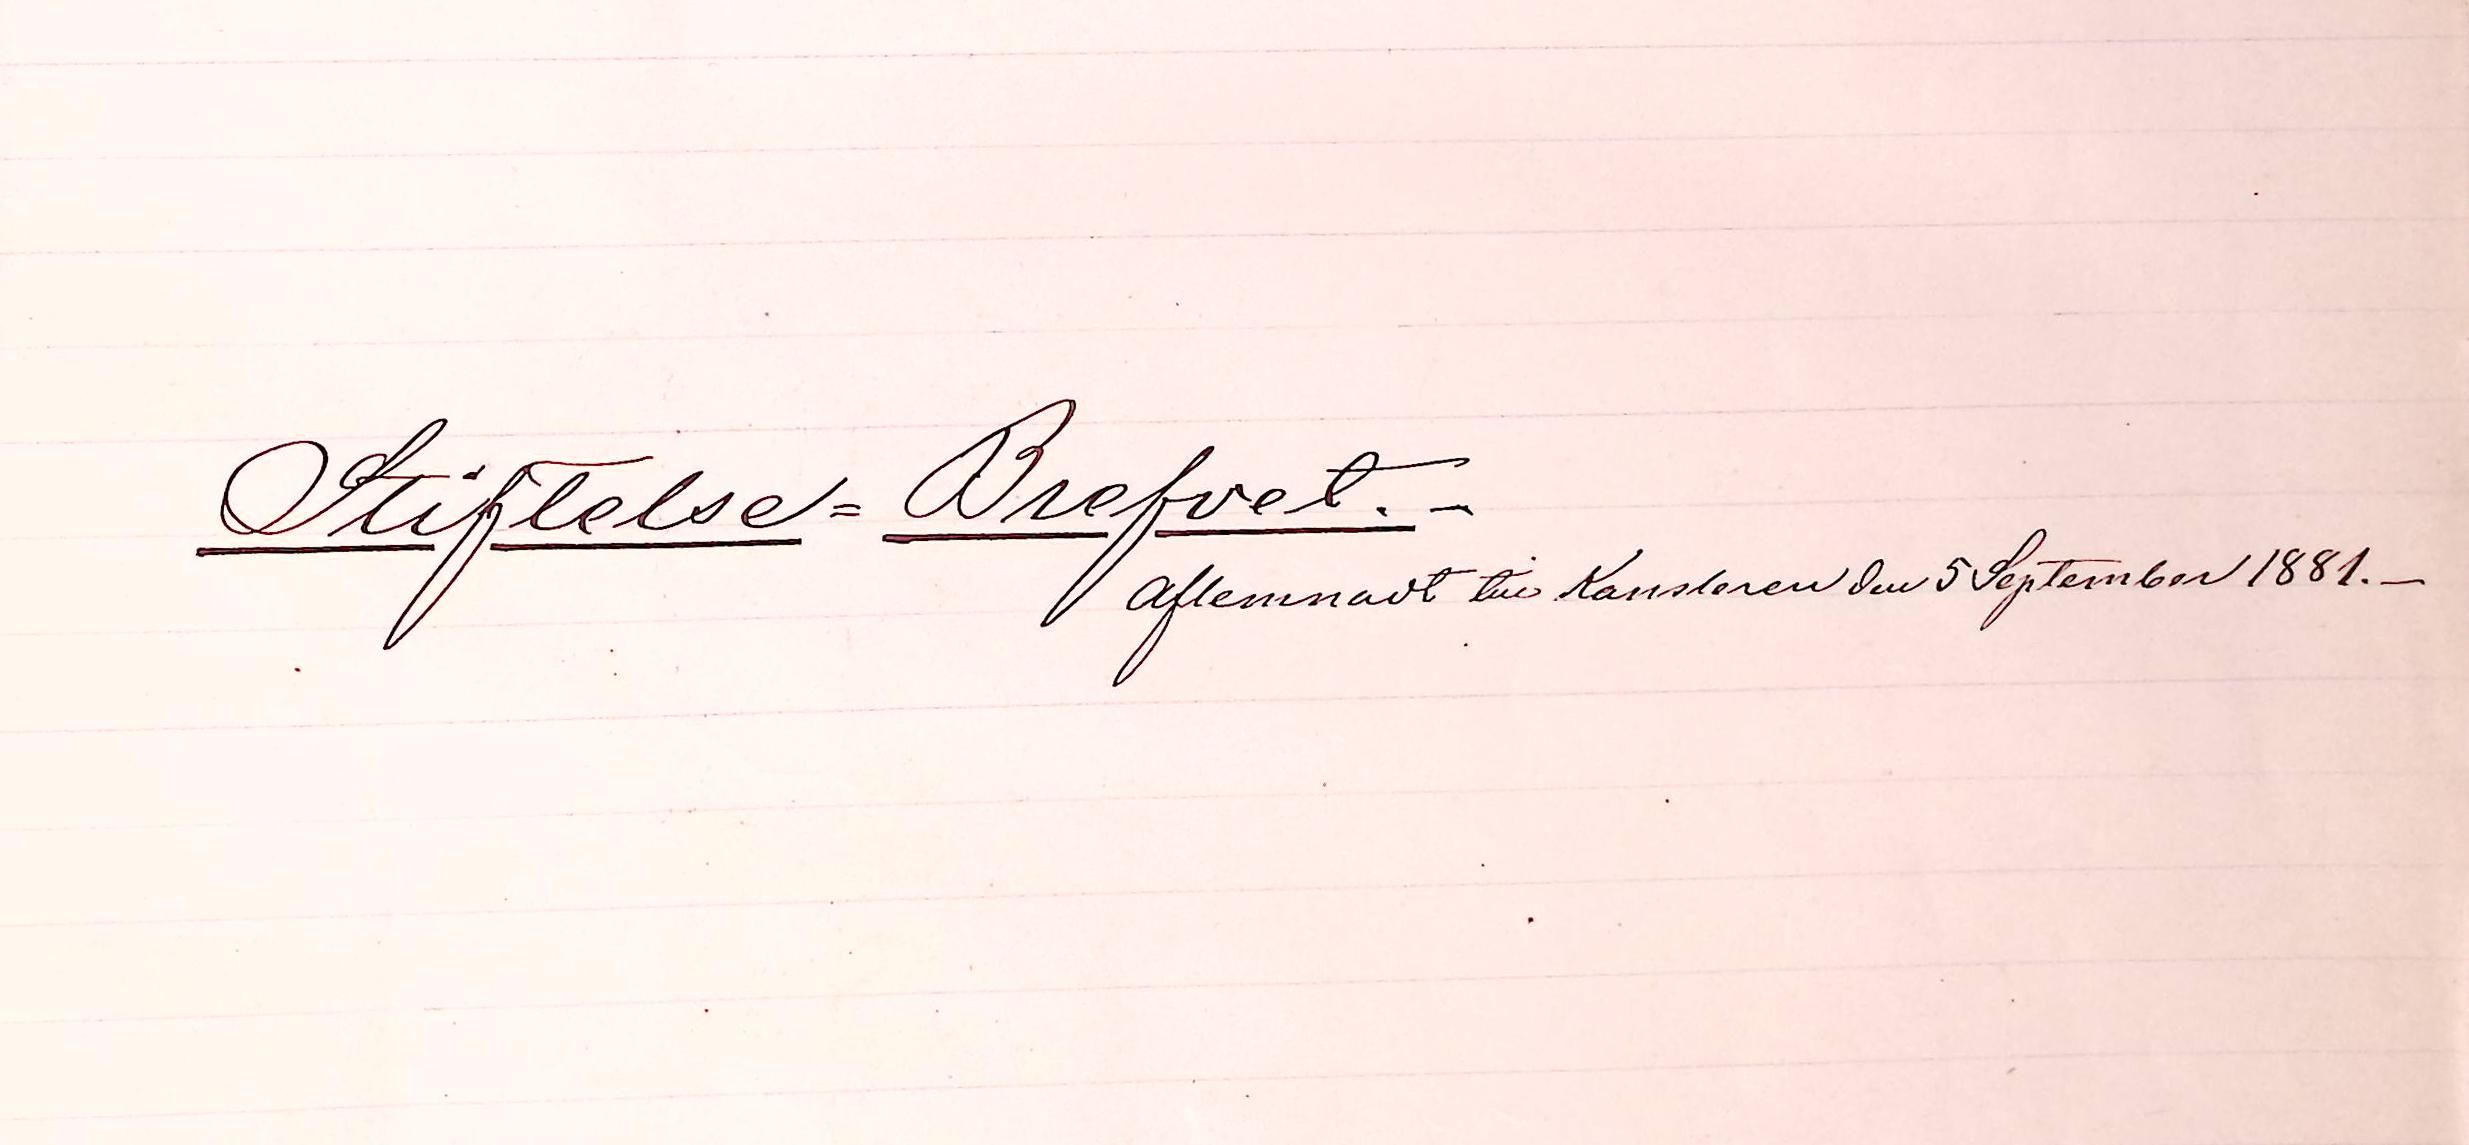 Stiftelse=Brefvet.-
aflemnadt till Kansleren den 5 September 1881.-